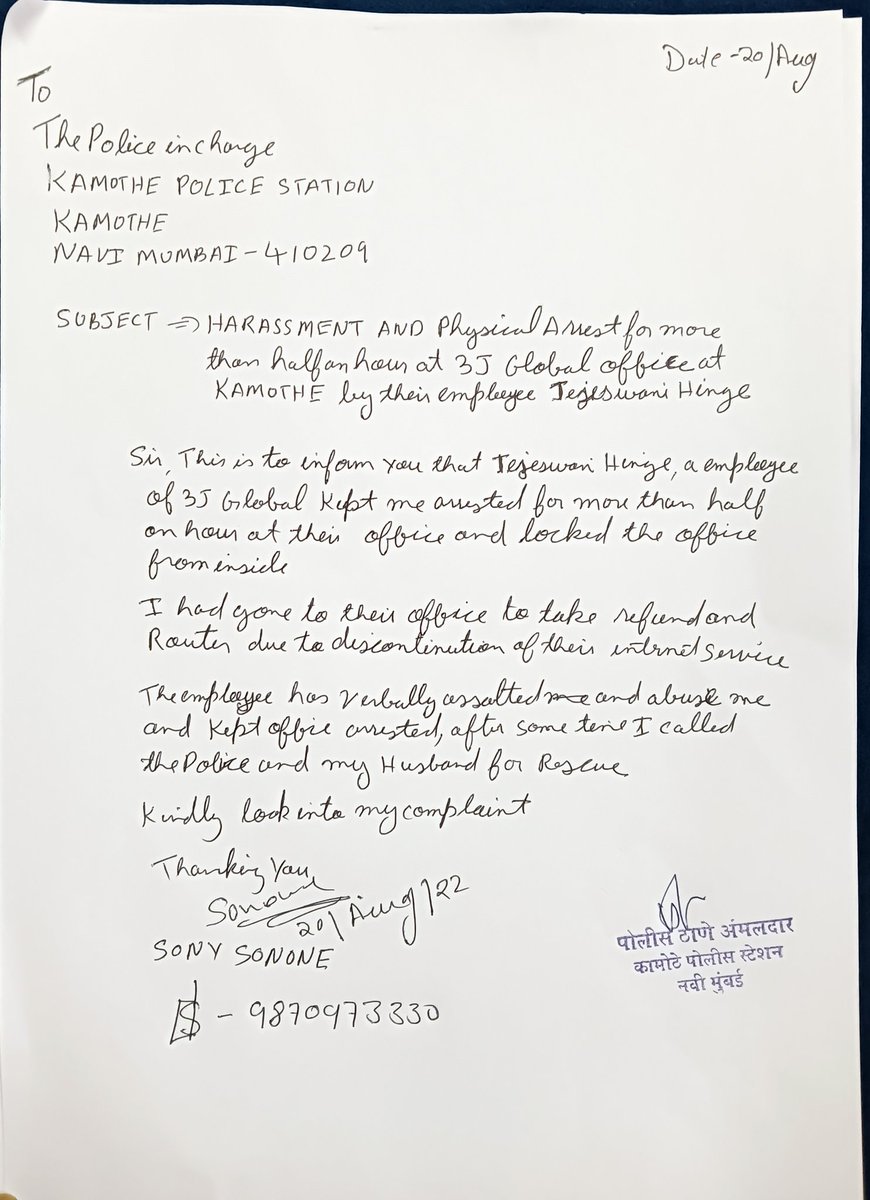 Date - 20/Aug
To
The Police incharge
KAMOTHE POLICE STATION
KAMOTHE
NAVI MUMBAI - 410209
SUBJECT ⇒ HARASSMENT AND Physical Arrest for more
than half an hour at 3J Global office at
KAMOTHE by their empleyee Tejeswani Hinge
Sir, This is to inform you that Tejeswari Hinge, a empleeyee
of 3J Global Kept me arrested for more than half
on hour at their office and locked the office
from inside
I had gone to their office to take refund and
Router due to discontinution of their intrnet service
The employee has Verbally assalted me and abuse me
and Kept offic arrested, after some time I called
the Police and my Husband for Rescue
Kindly look into my complaint
Thanking You
Sonone
20/Aug/22
SONY SONONE
- 9870973330
पोलीस ठाणे अंमलदार
कामोठे पोलीस स्टेशन
नवी मुंबई